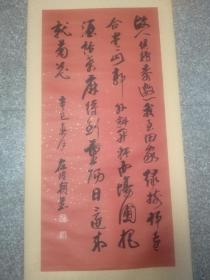 故人具雞黍邀我至田家綠樹村邊
合青山郭外斜開軒面場圃把
酒話桑麻待到重陽日還來
就菊花
辛巳春月